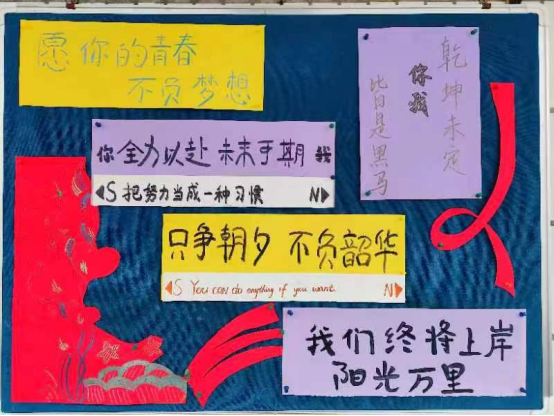 愿你的青春
不负梦想
乾坤未定
你我
皆是黑马
你全力以赴 未来于期我
S 把努力当成一种习惯 N
只争朝夕 不负韶华
S You can do anything if you want. N
我们终将上岸
阳光万里